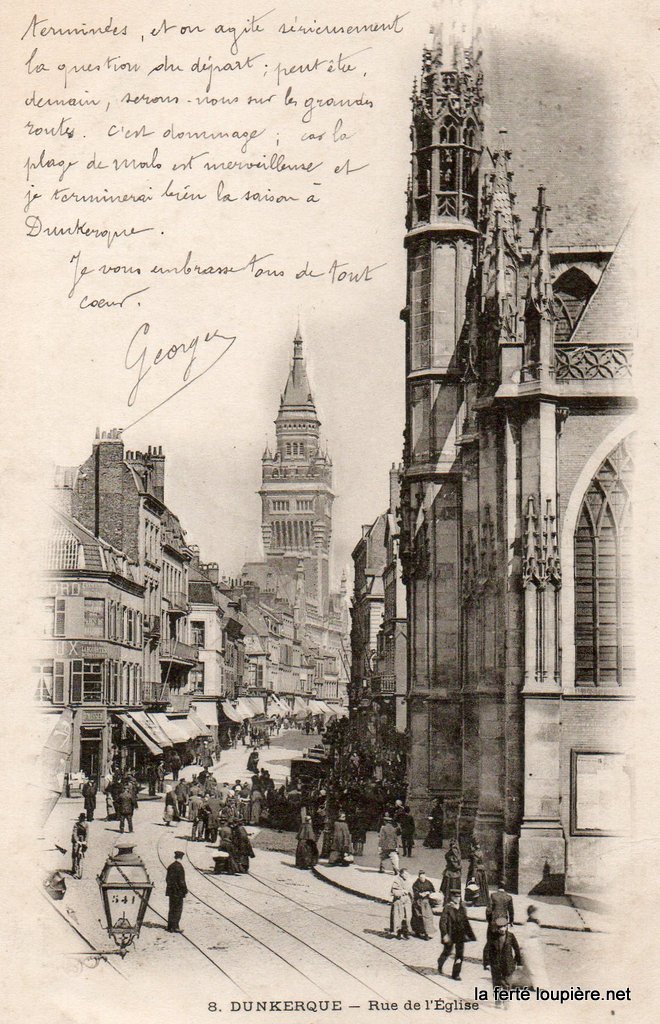 terminées, et on agite sérieusement
la question du départ ; peut être,
demain, serons-nous sur les grandes
routes. C'est dommage ; car la
plage de malo est merveilleuse et
je terminerai bien la saison à
Dunkerque.
Je vous embrasse tous de tout
cœur.
Georges
UX
541
8. DUNKERQUE – Rue de l'Église
la ferté loupière.net